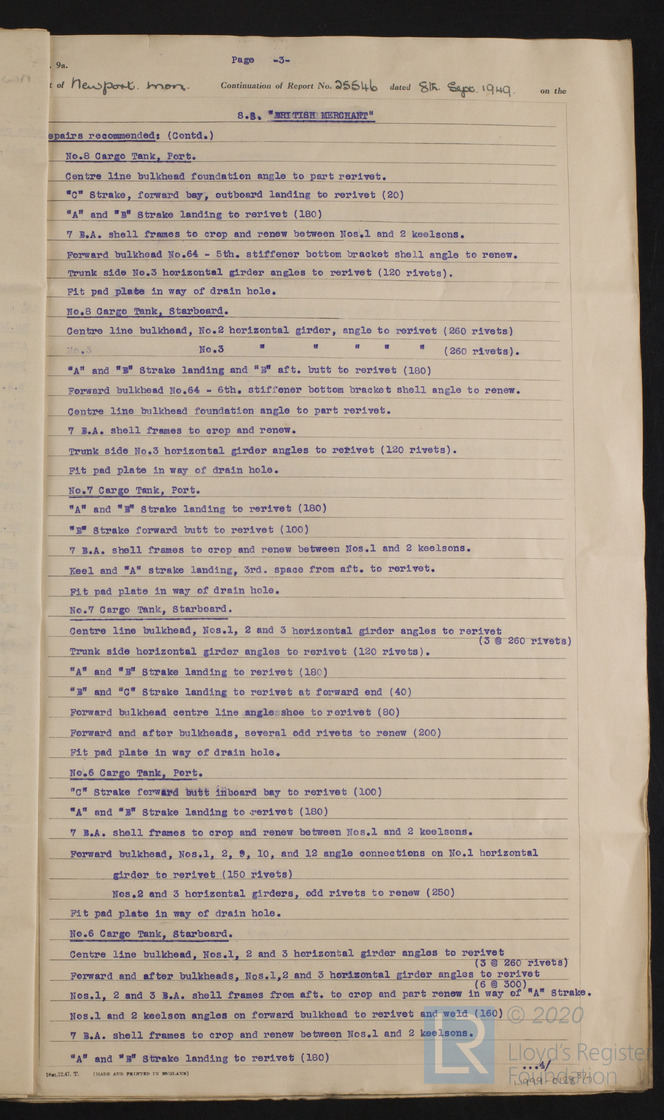 . 9a.
Page -3-
t of Newport. Mon. Continuation of Report No. 25546 dated 8th. Sept. 1949. on the
S.S. "BRITISH MERCHANT"
epairs recommended: (Contd.)
No.8 Cargo Tank, Port.
Centre line bulkhead foundation angle to part rerivet.
"C" Strake, forward bay, outboard landing to rerivet (20)
"A" and "B" Strake landing to rerivet (180)
7 B.A. shell frames to crop and renew between Nos.1 and 2 keelsons.
Forward bulkhead No.64 - 5th. stiffener bottom bracket shell angle to renew.
Trunk side No.3 horizontal girder angles to rerivet (120 rivets).
Fit pad plate in way of drain hole.
No.8 Cargo Tank, Starboard.
Centre line bulkhead, No.2 horizontal girder, angle to rerivet (260 rivets)
No.3 No.3 " " " " " (260 rivets).
"A" and "B" Strake landing and "B" aft. butt to rerivet (180)
Forward bulkhead No.64 - 6th. stiffener bottom bracket shell angle to renew.
Centre line bulkhead foundation angle to part rerivet.
7 B.A. shell frames to crop and renew.
Trunk side No.3 horizontal girder angles to rerivet (120 rivets).
Fit pad plate in way of drain hole.
No.7 Cargo Tank, Port.
"A" and "B" Strake landing to rerivet (180)
"B" Strake forward butt to rerivet (100)
7 B.A. shell frames to crop and renew between Nos.1 and 2 keelsons.
Keel and "A" strake landing, 3rd. space from aft. to rerivet.
Fit pad plate in way of drain hole.
No.7 Cargo Tank, Starboard.
Centre line bulkhead, Nos.1, 2 and 3 horizontal girder angles to rerivet
(3 @ 260 rivets)
Trunk side horizontal girder angles to rerivet (120 rivets).
"A" and "B" Strake landing to rerivet (180)
"B" and "C" Strake landing to rerivet at forward end (40)
Forward bulkhead centre line angle shoe to rerivet (80)
Forward and after bulkheads, several odd rivets to renew (200)
Fit pad plate in way of drain hole.
No.6 Cargo Tank, Port.
"C" Strake forward butt inboard bay to rerivet (100)
"A" and "B" Strake landing to rerivet (180)
7 B.A. shell frames to crop and renew between Nos.1 and 2 keelsons.
Forward bulkhead, Nos.1, 2, 9, 10, and 12 angle connections on No.1 horizontal
girder to rerivet (150 rivets)
Nos.2 and 3 horizontal girders, odd rivets to renew (250)
Fit pad plate in way of drain hole.
No.6 Cargo Tank, Starboard.
Centre line bulkhead, Nos.1, 2 and 3 horizontal girder angles to rerivet
(3 @ 260 rivets)
Forward and after bulkheads, Nos.1,2 and 3 horizontal girder angles to rerivet
(6 @ 300)
Nos.1, 2 and 3 B.A. shell frames from aft. to crop and part renew in way of "A" Strake.
Nos.1 and 2 keelson angles on forward bulkhead to rerivet and weld (160)
7 B.A. shell frames to crop and renew between Nos.1 and 2 keelsons.
"A" and "B" Strake landing to rerivet (180)
LR © 2020
Lloyd's Register
Foundation
(MADE AND PRINTED IN ENGLAND)